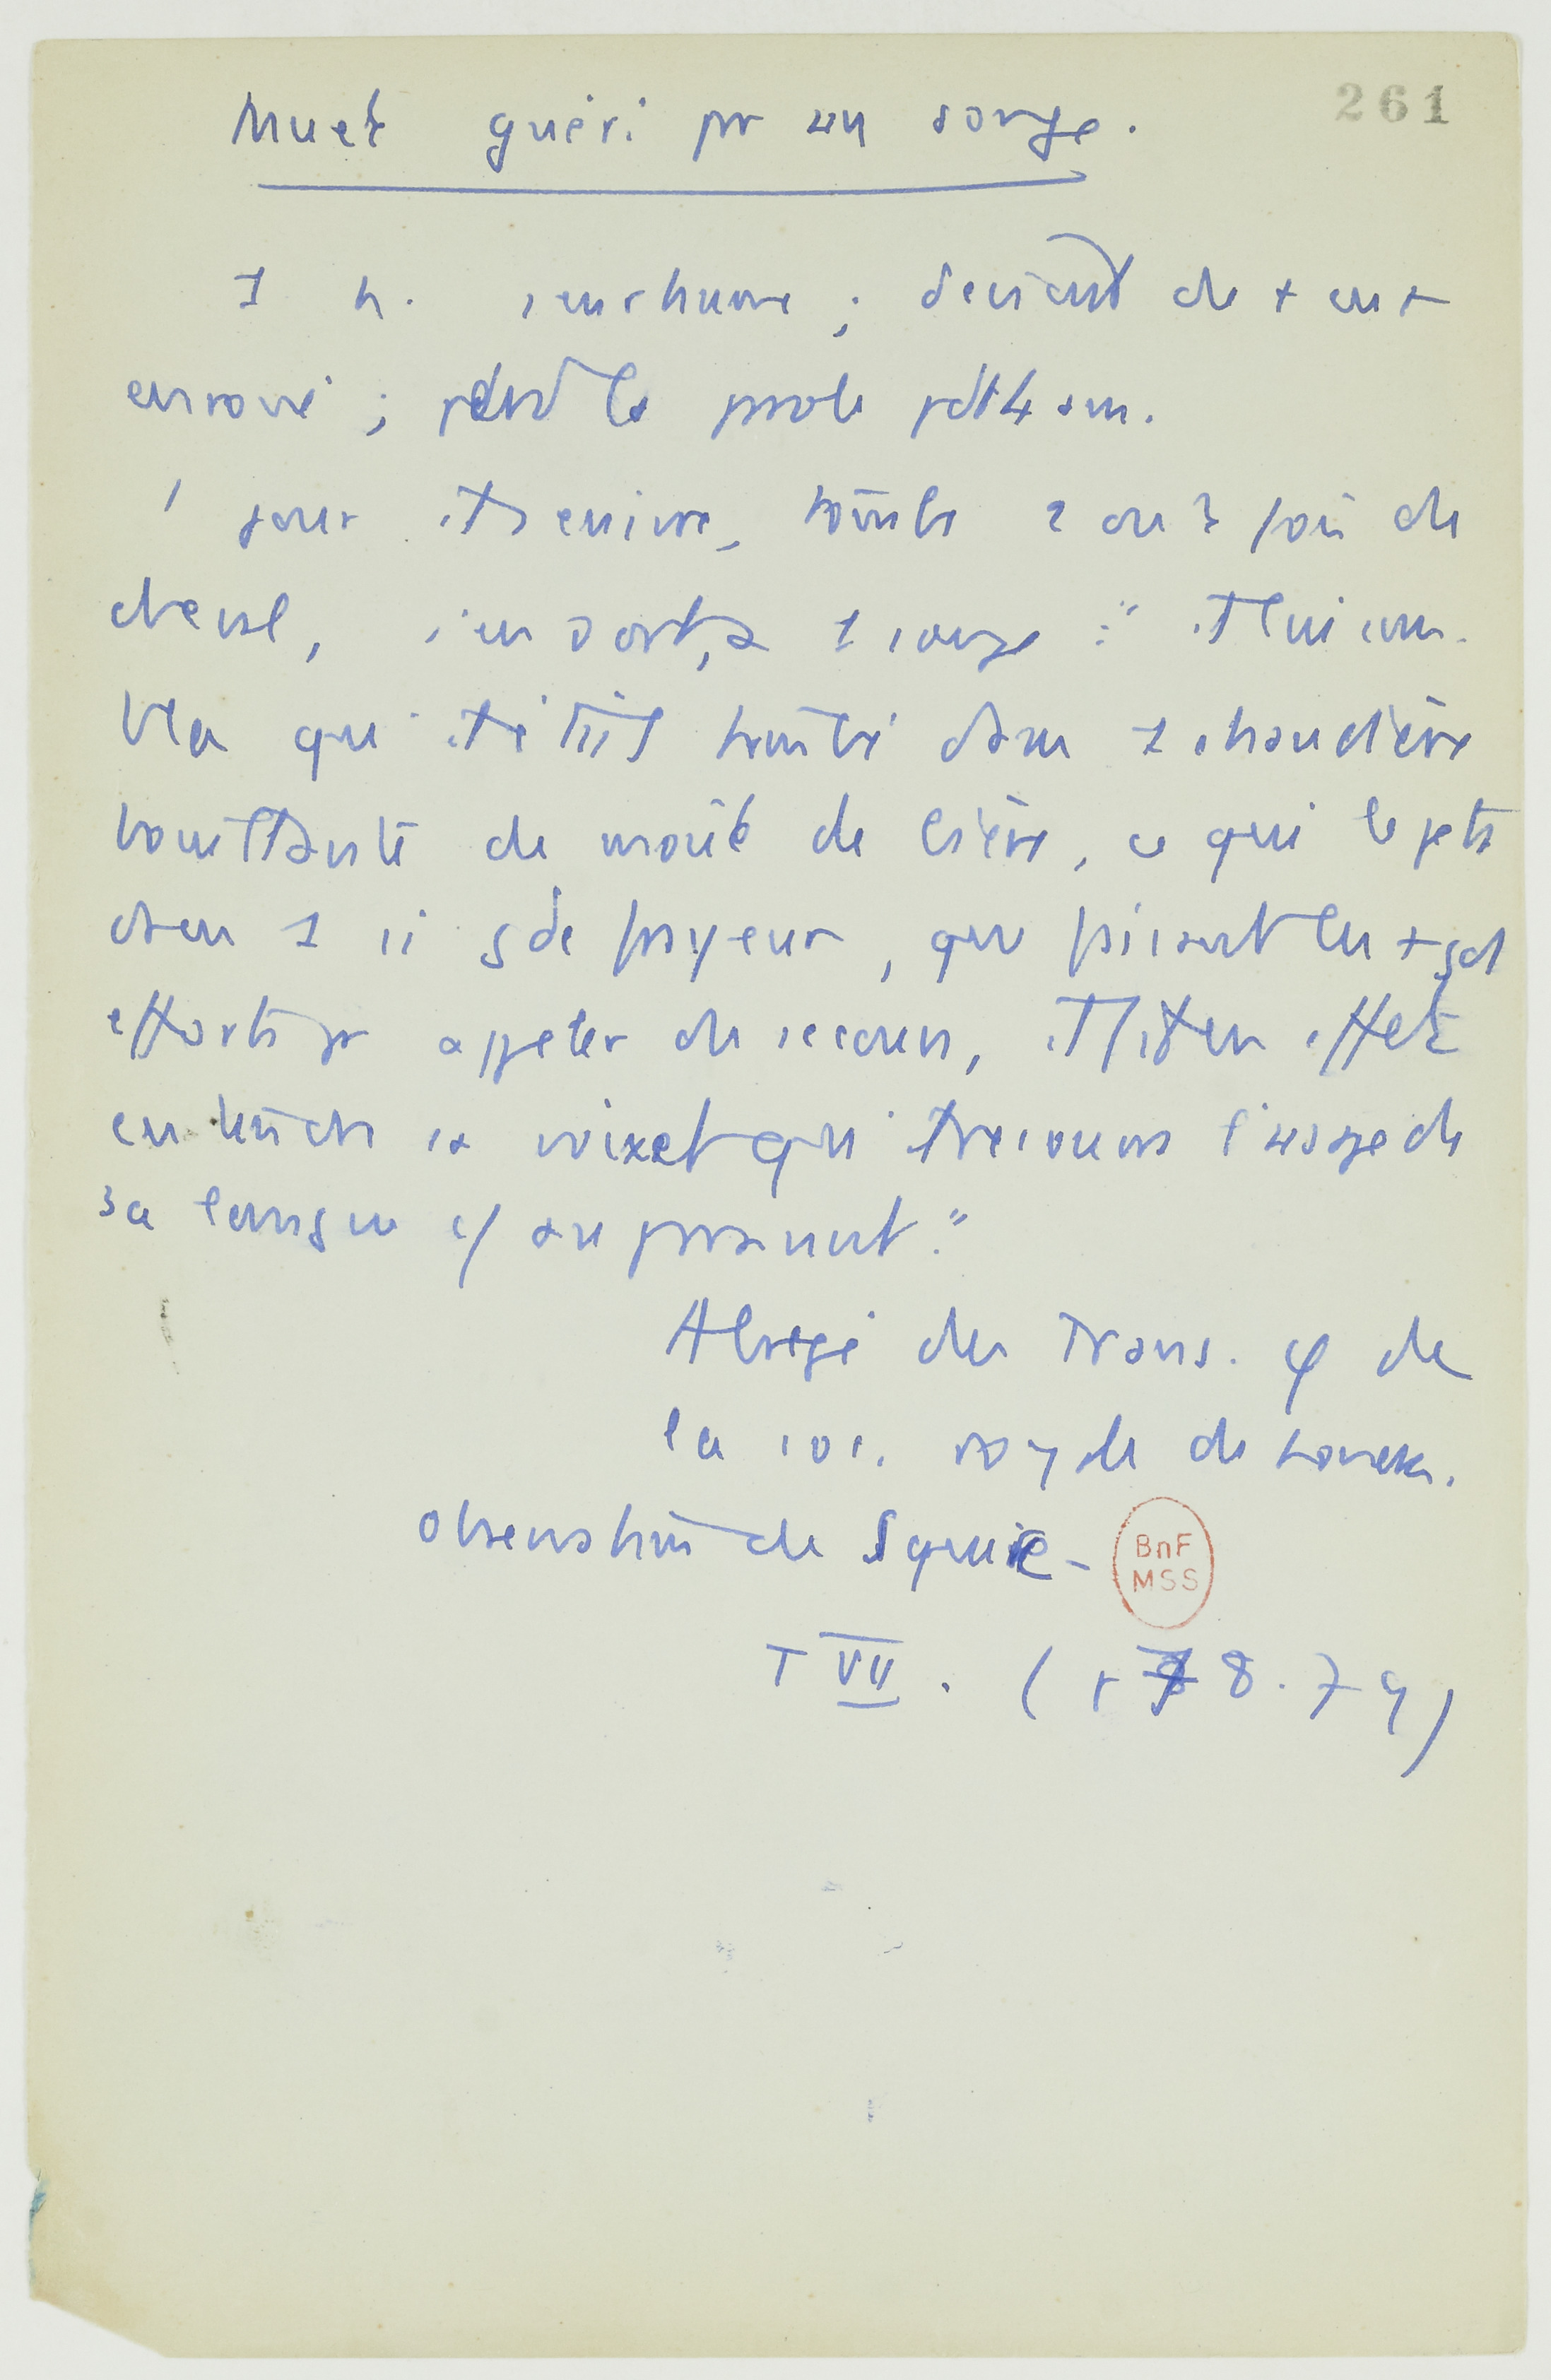 261
Muet guéri pr un songe.
1 h. s'enrhume ; devient de + en +
enroué ; perd la parole pdt 4 ans.
1 jour il s'enivre, tombe 2 ou 3 fois de
cheval, s'endort, a 1 songe : " il lui sem-
bla qu'il était tombé dans 1 chaudière
bouillante de moût de bière, ce qui le jeta
dans 1 si gde frayeur, que faisant les + gd
efforts pr appeler du secours, il fit en effet
entendre sa voix et qu'il recouvra l'usage de
sa langue cf auparavant."
Abrégé des Trans. φ de
la soc. royale de Londres.
Observation de Squire
BnF
MSS
T VII. ( p 78.79)